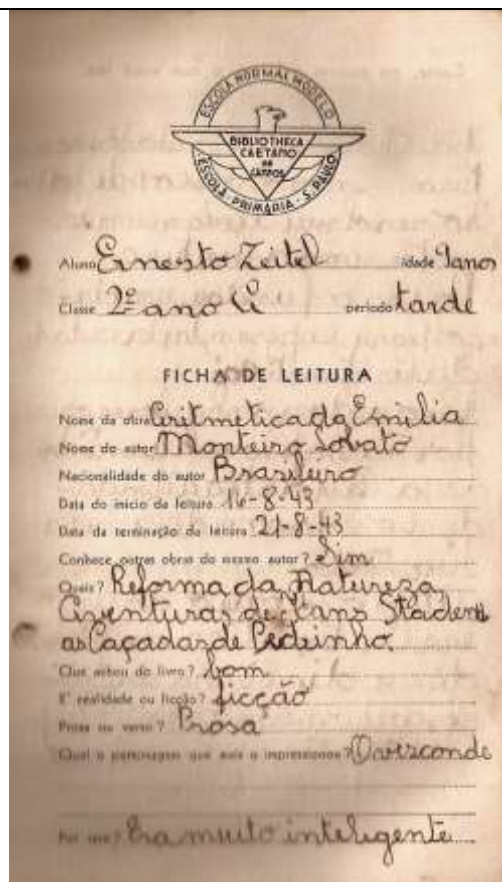 ESCOLA NORMAL MODELO
BIBLIOTHECA
CAETANO
DE
CAMPOS
ESCOLA PRIMARIA - S. PAULO
Aluno Ernesto Zeitel idade 9 anos
Classe 2º ano A periodo tarde
FICHA DE LEITURA
Nome da obra Aritmetica da Emilia
Nome do autor Monteiro Lobato
Nacionalidade do autor Brasileiro
Data do inicio da leitura 16-8-43
Data da terminação da leitura 21-8-43
Conhece outras obras do mesmo autor? Sim
Quais? Reforma da Natureza,
Aventuras de Hans Staden
as Caçadas de Pedrinho.
Que achou do livro? bom
E' realidade ou ficção? ficção
Prosa ou verso? Prosa
Qual o personagem que mais o impressionou? O visconde
Por que? Era muito inteligente